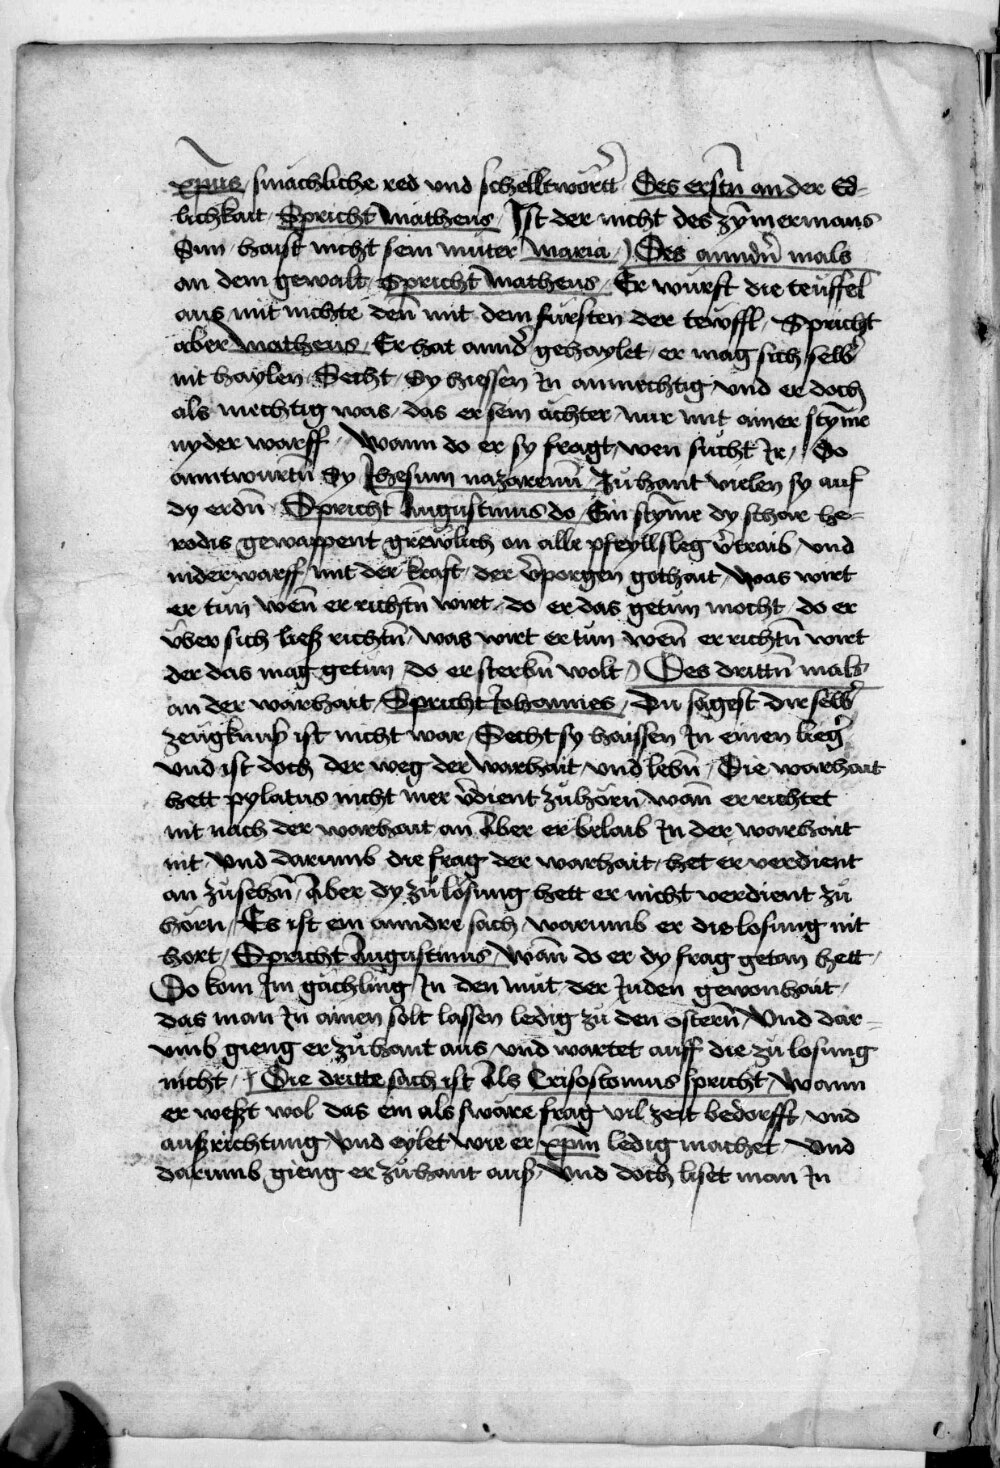 xp̄us / smächliche red vnd schelltwörtt̄ Des erstn̄ an der Ed-
lichkait Spricht Matheus / Ist der nicht des zȳmermans
Sun / haist nicht sein muter Maria / Des anndn̄ mals
an dem gewalt / Spricht Matheus / Er wurft die teuffel
aus mit nichte denn̄ mit dem fürsten der tewffl / Spricht
aber Matheus / Er hat annd̄ gehaylet / er mag sich selb̄
nit haylen / Secht / dy hiessen In anmechtig / vnd er doch
als mechtig was / das er sein ächter nur mit ainer stym̄e
nyder warff / Wann do er sy fragt / wen sucht Ir / Do
anntwurtn̄ Sy Jhesum nazarenū / Zuhant vielen sy auf
dy erdn̄ / Spricht Augustinus do / Ein stym̄e dy schar he-
rodis gewappent grewlich on alle pfeyllsleg v̄traib / vnd
niderwarff / mit der kraft / der v̄porgen gothait / was wirt
er tun wen̄ er richtn̄ wirt / do er das getun mocht / do er
vber sich liesz richtn̄ / was wirt er tun wen̄ er richtn̄ wirt
der das mag getun / do er sterbn̄ wolt / Des drittn̄ mals
an der warhait / Spricht Johannes / Du sagest dir selb̄
zeugknuss ist nicht war / Secht sy haissen In einen lieḡ
vnd ist doch der weg der warhait / vnd lebn̄ / Die warhait
hett pylatus nicht mer v̄dient zuhörn̄ wan̄ er richtet
nit nach der warhait an Aber er belaib In der warhait
nit / vnd darumb die frag der warhait / het er verdient
an zusehn̄ / Aber dy zu losung hett er nicht verdient zu
hörn / Es ist ein anndre sach / warumb er die losung nit
hort / Spricht Augustinus / Wan̄ do er dy frag getan hett /
Do kom Im gächling In den mut der Juden gewonhait /
das man In ainen solt lassen ledig zu den ostern̄ / Vnd dar-
vmb gieng er zuhant aus / vnd wartet auff die zu losung
nicht / Die dritte sach ist Als Crisostomus spricht / Wann
er weszt wol das ein als swäre frag vil zeit bedorfft / vnd
auszrichtung / vnd eylet wie er xp̄m ledig machet / Vnd
darumb gieng er zuhant ausz / Vnd doch liset man In